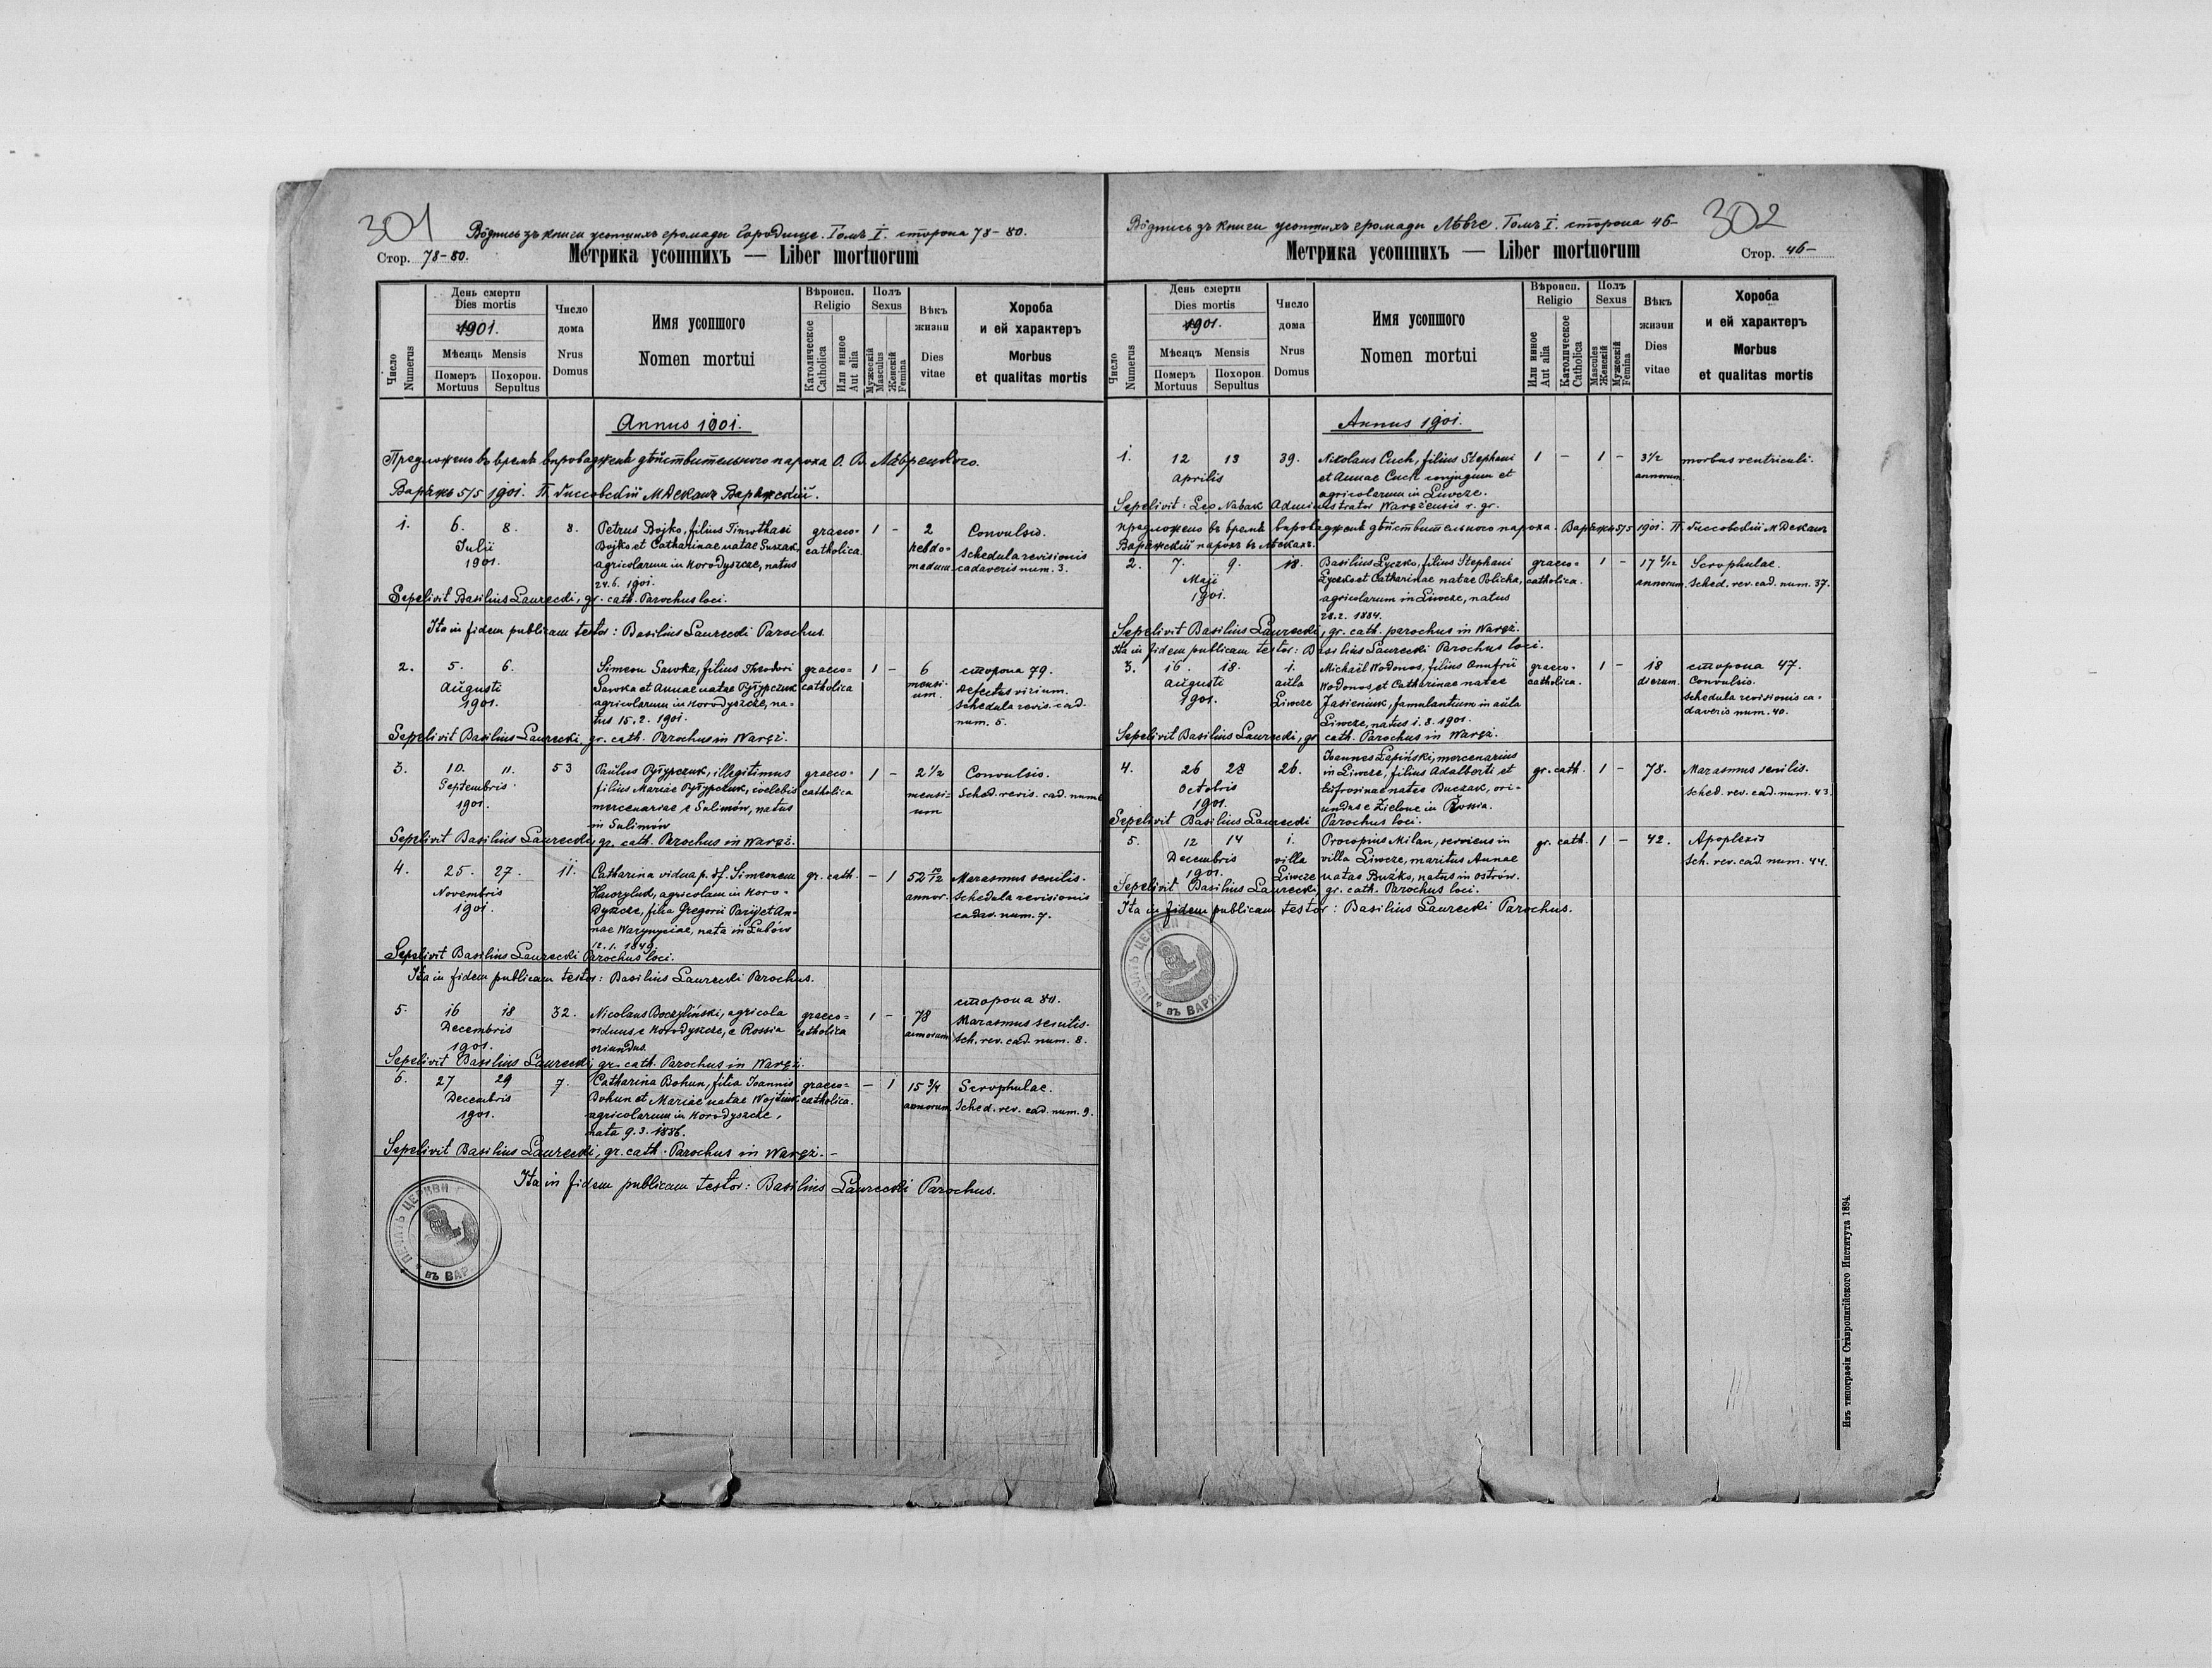 301
Вôдпись зъ книги усопшихъ громади Городище. Томъ I. сторона 78-80.
Стор. 78-80.
Метрика усопшихъ — Liber mortuorum
Число Numerus
День смерти
Dies mortis
1901.
Мѣсяць Mensis
Померъ Mortuus
Похорон. Sepultus
Число дома
Nrus Domus
Имя усопшого
Nomen mortui
Вѣроисп. Religio
Католическое Catholica
Или инное Aut alia
Полъ Sexus
Мужескій Masculus
Женскій Femina
Вѣкъ жизни
Dies vitae
Хороба и ей характеръ
Morbus et qualitas mortis
Annus 1901.
Предложено въ время впроваджень дѣйствительного пароха О. В. Лаврецкого.
Варяжъ 5/5 1901.
1. 6. 8. 8. Petrus Bojko, filius Timothaei graeco= 1 - 2 Convulsio.
Julii Bojko et Catharinae natae Suszak, catholica. hebdo= Schedula revisionis
1901. agricolarum in Horodyszcze, natus madum cadaveris num. 3.
24.6. 1901.
Sepelivit Basilius Laurecki, gr. cath. Parochus loci.
Ita in fidem publicam testor: Basilius Laurecki Parochus.
2. 5. 6. Simeon Sawka, filius Theodori graeco= 1 - 6 сторона 79.
Augusti Sawka et Annae natae catholica mensi-um. Defectus virium.
1901. agricolarum in Horodyszcze, na= Schedula revis. cad.
tus 15.2. 1901. num. 5.
Sepelivit Basilius Laurecki, gr. cath. Parochus in Waręż.
3. 10. 11. 53 Paulus illegitimus graeco= 1 - 2 1/2 Convulsio.
Septembris filius Mariae coelebis catholica mensi= Sched. revis. cad. num
1901. mercenariae e Sulimów, natus um
in Sulimów
Sepelivit Basilius Laurecki, gr. cath. Parochus in Waręż.
4. 25. 27. 11. Catharina vidua p. df. Simeonem gr. cath. - 1 52 10/12 Marasmus senilis.
Novembris Hawryluk, agricolam in Horo= annor. Schedula revisionis
1901. dyszcze, filia Gregorii Paryj et An= cadav. num. 7.
nae nata in Łubów
12.1. 1849.
Sepelivit Basilius Laurecki Parochus loci.
Ita in fidem publicam testor: Basilius Laurecki Parochus.
сторона 80.
5. 16 18 32. Nicolaus Boczyliński, agricola graeco= 1 - 78 Marasmus senilis.
Decembris viduus e Horodyszcze, e Rossia catholica annorum Sch. rev. cad. num. 8.
1901. oriundus.
Sepelivit Basilius Laurecki, gr. cath. Parochus in Waręż.
6. 27 29 7. Catharina Bohun, filia Joannis graeco= - 1 15 3/4 Scrophulae.
Decembris Bohun et Mariae natae Wojtiuk catholica. annorum. Sched. rev. cad. num. 9.
1901. agricolarum in Horodyszcze,
nata 9.3. 1886.
Sepelivit Basilius Laurecki, gr. cath. Parochus in Waręż. -
Ita in fidem publicam testor: Basilius Laurecki Parochus.
ПЕЧАТЬ ЦЕРКВИ
въ ВАР
302
Вôдпись зъ книги усопшихъ громади Лѣвче. Томъ I. сторона 46-
Метрика усопшихъ — Liber mortuorum
Стор. 46-
Число Numerus
День смерти
Dies mortis
1901.
Мѣсяцъ Mensis
Померъ Mortuus
Похорон Sepultus
Число дома
Nrus Domus
Имя усопшого
Nomen mortui
Вѣроисп. Religio
Или инное Aut alia
Католическое Catholica
Полъ Sexus
Masculus Женскій
Мужескій Femina
Вѣкъ жизни
Dies vitae
Хороба и ей характеръ
Morbus et qualitas mortis
Annus 1901.
1. 12 13 39. Nikolaus Cuch, filius Stephani 1 - 1 - 3 1/2 morbus ventriculi.
Aprilis et Annae Cuch conjugum et annorum.
agricolarum in Liwcze.
Sepelivit: Leo Nabak Administrator Waręzensis r. gr.
предложено въ время впроваджень дѣйствительного пароха. Варяжъ 5/5 1901.
Варяжскій парохъ въ
2. 7. 9. 18. Basilius Łyczko, filius Stephani graeco= 1 - 17 2/12 Scrophulae.
Maji Łyczko et Catharinae natae Policha, catholica. annorum. Sched. rev. cad. num. 37.
1901. agricolarum in Liwcze, natus
28.2. 1884.
Sepelivit Basilius Laurecki, gr. cath. parochus in Waręż.
Ita in fidem publicam testor: Basilius Laurecki Parochus loci.
3. 16. 18. 1. Michael Wodonos, filius Onufrii graeco= 1 - 18 сторона 47.
Augusti aula Wodonos, et Catharinae natae catholica. dierum. Convulsio.
1901. Liwcze Jasieniuk, famulantium in aula Schedula revisionis ca=
Liwcze, natus 1.8. 1901. daveris num. 40.
Sepelivit Basilius Laurecki, gr. cath. Parochus in Waręż.
4. 26 28 26. Joannes Łapiński, mercenarius gr. cath. 1 - 78. Marasmus senilis.
Octobris in Liwcze, filius Adalberti et Sched. rev. cad. num. 43.
1901. Eufrosinae natae Buczak, ori=
undus e Zielone in Rossia.
Sepelivit Basilius Laurecki Parochus loci.
5. 12 14 1. Procopius Milan, serviens in gr. cath. 1 - 42. Apoplexis
Decembris villa villa Liwcze, maritus Annae Sch. rev. cad. num. 44.
1901. Liwcze natae Buźko, natus in Ostrów.
Sepelivit Basilius Laurecki, gr. cath. Parochus loci.
Ita in fidem publicam testor: Basilius Laurecki Parochus.
ПЕЧАТЬ ЦЕРКВИ
въ ВАР
Изъ типографіи Ставропигійского Института 1894.